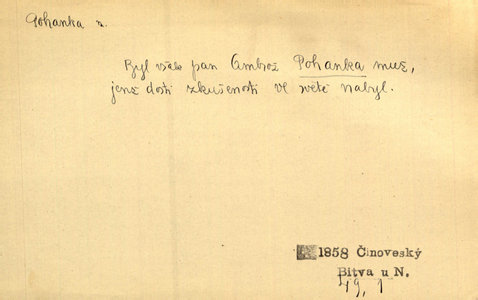 Pohanka z.
Byl však pan Ambrož Pohanka muž,
jenž dosti zkušenosti ve světě nabyl.
1858 Činoveský
Bitva u N.
49, 1